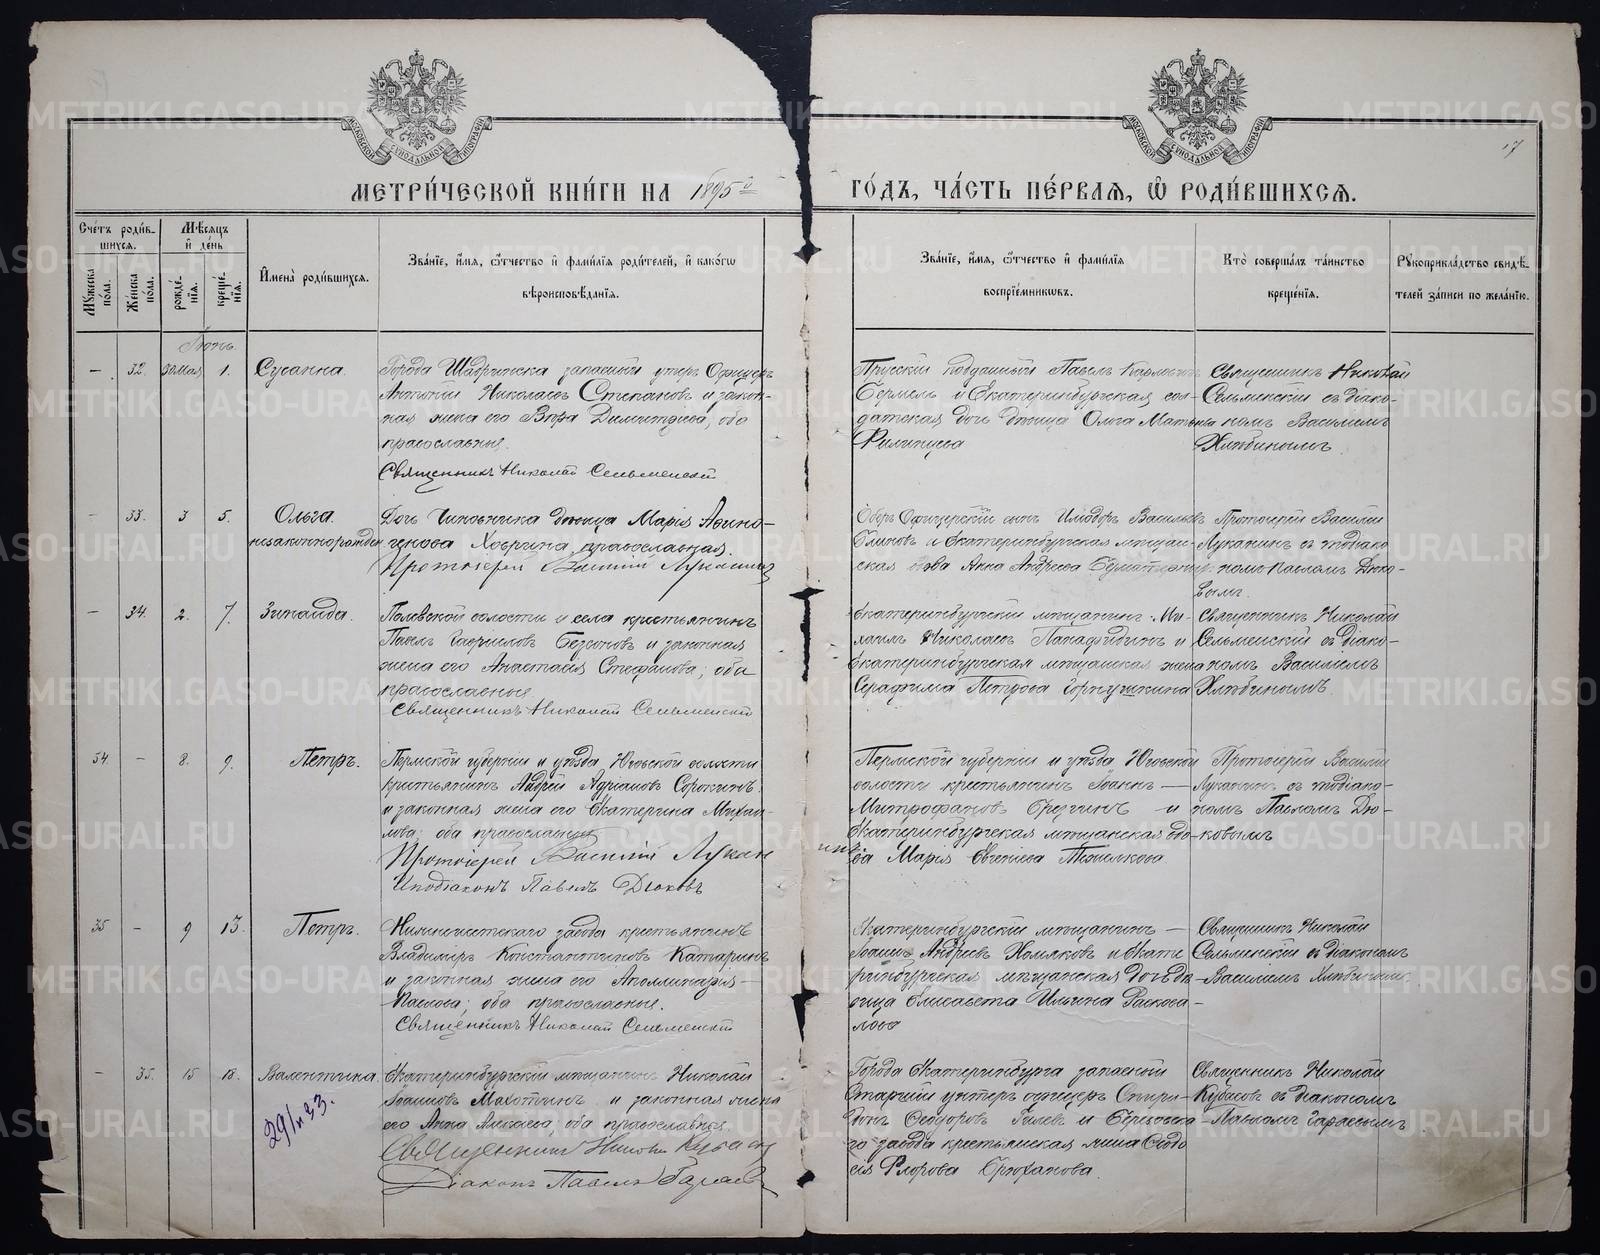 МЕТРИ́ЧЕСКОЙ КНИ́ГИ НА 1895й ГО́ДЪ, ЧА́СТЬ ПЕ́РВАЯ, Ѿ РОДИ́ВШИХСЯ.
17
МОСКОВСКОЙ СѴНОДАЛЬНОЙ ТИПОГРАФІИ
МОСКОВСКОЙ СѴНОДАЛЬНОЙ ТИПОГРАФІИ
Сче́тъ роди́в-
шихся.
Мꙋ́жеска по́ла.
Же́нска по́ла.
Мѣ́сяцъ
и҆ де́нь
рожде́-
нїѧ.
креще́-
нїѧ.
И҆мена̀ роди́вшихся.
Зва́нїе, и҆́мѧ, ѻ҆́тчество и҆ фами́лїѧ роди́телей, и҆ како́гѡ
вѣроисповѣ́данїѧ.
Зва́нїе, и҆́мѧ, ѻ҆́тчество и҆ фами́лїѧ
воспрїе́мникѡвъ.
Кто̀ соверша́лъ та́инство
креще́нїѧ.
Рꙋкоприкла́дство свидѣ́-
телей за́писи по жела́нїю.
Іюнь.
– 32. 30 мая 1. Сусанна.
Города Шадринска запасный унтеръ Офицеръ
Антоній Николаевъ Степановъ и закон-
ная жена его Вѣра Димитріева, оба
православные.
Священникъ Николай Сельменскій
Прусскій подданный Павелъ
Екатеринбургская сол-
датская дочь дѣвица Ольга
Филипцева
Священникъ Николай
Сельменскій съ діако-
номъ Василіемъ
Хлѣбинымъ.
– 33. 3 5. Ольга.
незаконнорожден
Дочь Чиновника дѣвица Марія Аѳино-
генова Ховрина, православная.
Протоіерей Василій Луканинъ
Оберъ Офицерскій сынъ Иліодоръ Васильевъ
Блиновъ и Екатеринбургская мѣщан-
ская вдова Анна Андреева
Протоіерей Василій
Луканинъ съ иподіако-
номъ Павломъ Дюко-
вымъ.
– 34. 2. 7. Зинаида.
Полевской волости и села крестьянинъ
Павелъ Гавриловъ Безсоновъ и законная
жена его Анастасія Стефанова; оба
православные
Священникъ Николай Сельменскій
Екатеринбургскій мѣщанинъ Ми-
хаилъ Николаевъ Панафидинъ и
Екатеринбургская мѣщанская жена
Серафима Петрова Горнушкина
Священникъ Николай
Сельменскій съ діако-
номъ Василіемъ
Хлѣбинымъ.
54. – 8. 9. Петръ.
Пермской губерніи и уѣзда Юговской волости
крестьянинъ Андрей Адріановъ Сорокинъ
и законная жена его Екатерина Михаи-
лова; оба православные
Протоіерей Василій Лукан
Иподіаконъ Павелъ Дюковъ
Пермской губерніи и уѣзда Юговской
волости крестьянинъ Іоаннъ –
Митрофановъ и
Екатеринбургская мѣщанская
Марія Евгеніева
Протоіерей Василій
Луканинъ съ иподіако-
номъ Павломъ Дю-
ковымъ
35 – 9 13. Петръ.
Нижнеистскаго завода крестьянинъ
Владиміръ Константиновъ Катаринъ
и законная жена его Аполлинарія –
Павлова; оба православные.
Священникъ Николай Сельменскій
Екатеринбургскій мѣщанинъ –
Іоаннъ Андреевъ Хомяковъ и Екате
ринбургская мѣщанская дочь дѣ-
вица Елисавета Ильина Расково-
лова
Священникъ Николай
Сельменскій съ діакономъ
Василіемъ Хлѣбинымъ.
– 35. 15 18. Валентина.
29/ 33.
Екатеринбургскій мѣщанинъ Николай
Іоанновъ Махоткинъ и законная жена
его Анна Алексѣева, оба православные.
Священникъ Николай Кубасов
Діаконъ Павелъ
Города Екатеринбурга запасный
Старшій унтеръ офицеръ Спири-
донъ Ѳеодоровъ и Березовска-
го завода крестьянская жена Ѳеодо
сія Фролова Брюханова.
Священникъ Николай
Кубасовъ съ діакономъ
Павломъ
METRIKI.GASO-URAL.RU